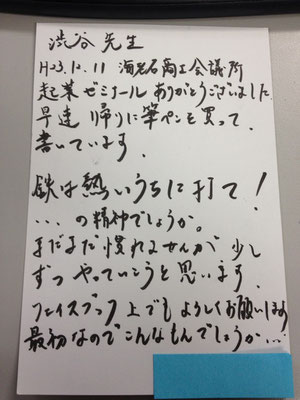 渋谷 先生
H23.12.11 海老名商工会議所
起業ゼミナール ありがとうございました
早速 帰りに筆ペンを買って、
書いています。
鉄は熱いうちに打て!
...の精神でしょうか。
まだまだ慣れませんが 少し
ずつ やっていこうと思います。
フェイスブック上でも よろしくお願いします
最初なのでこんなもんでしょうか...